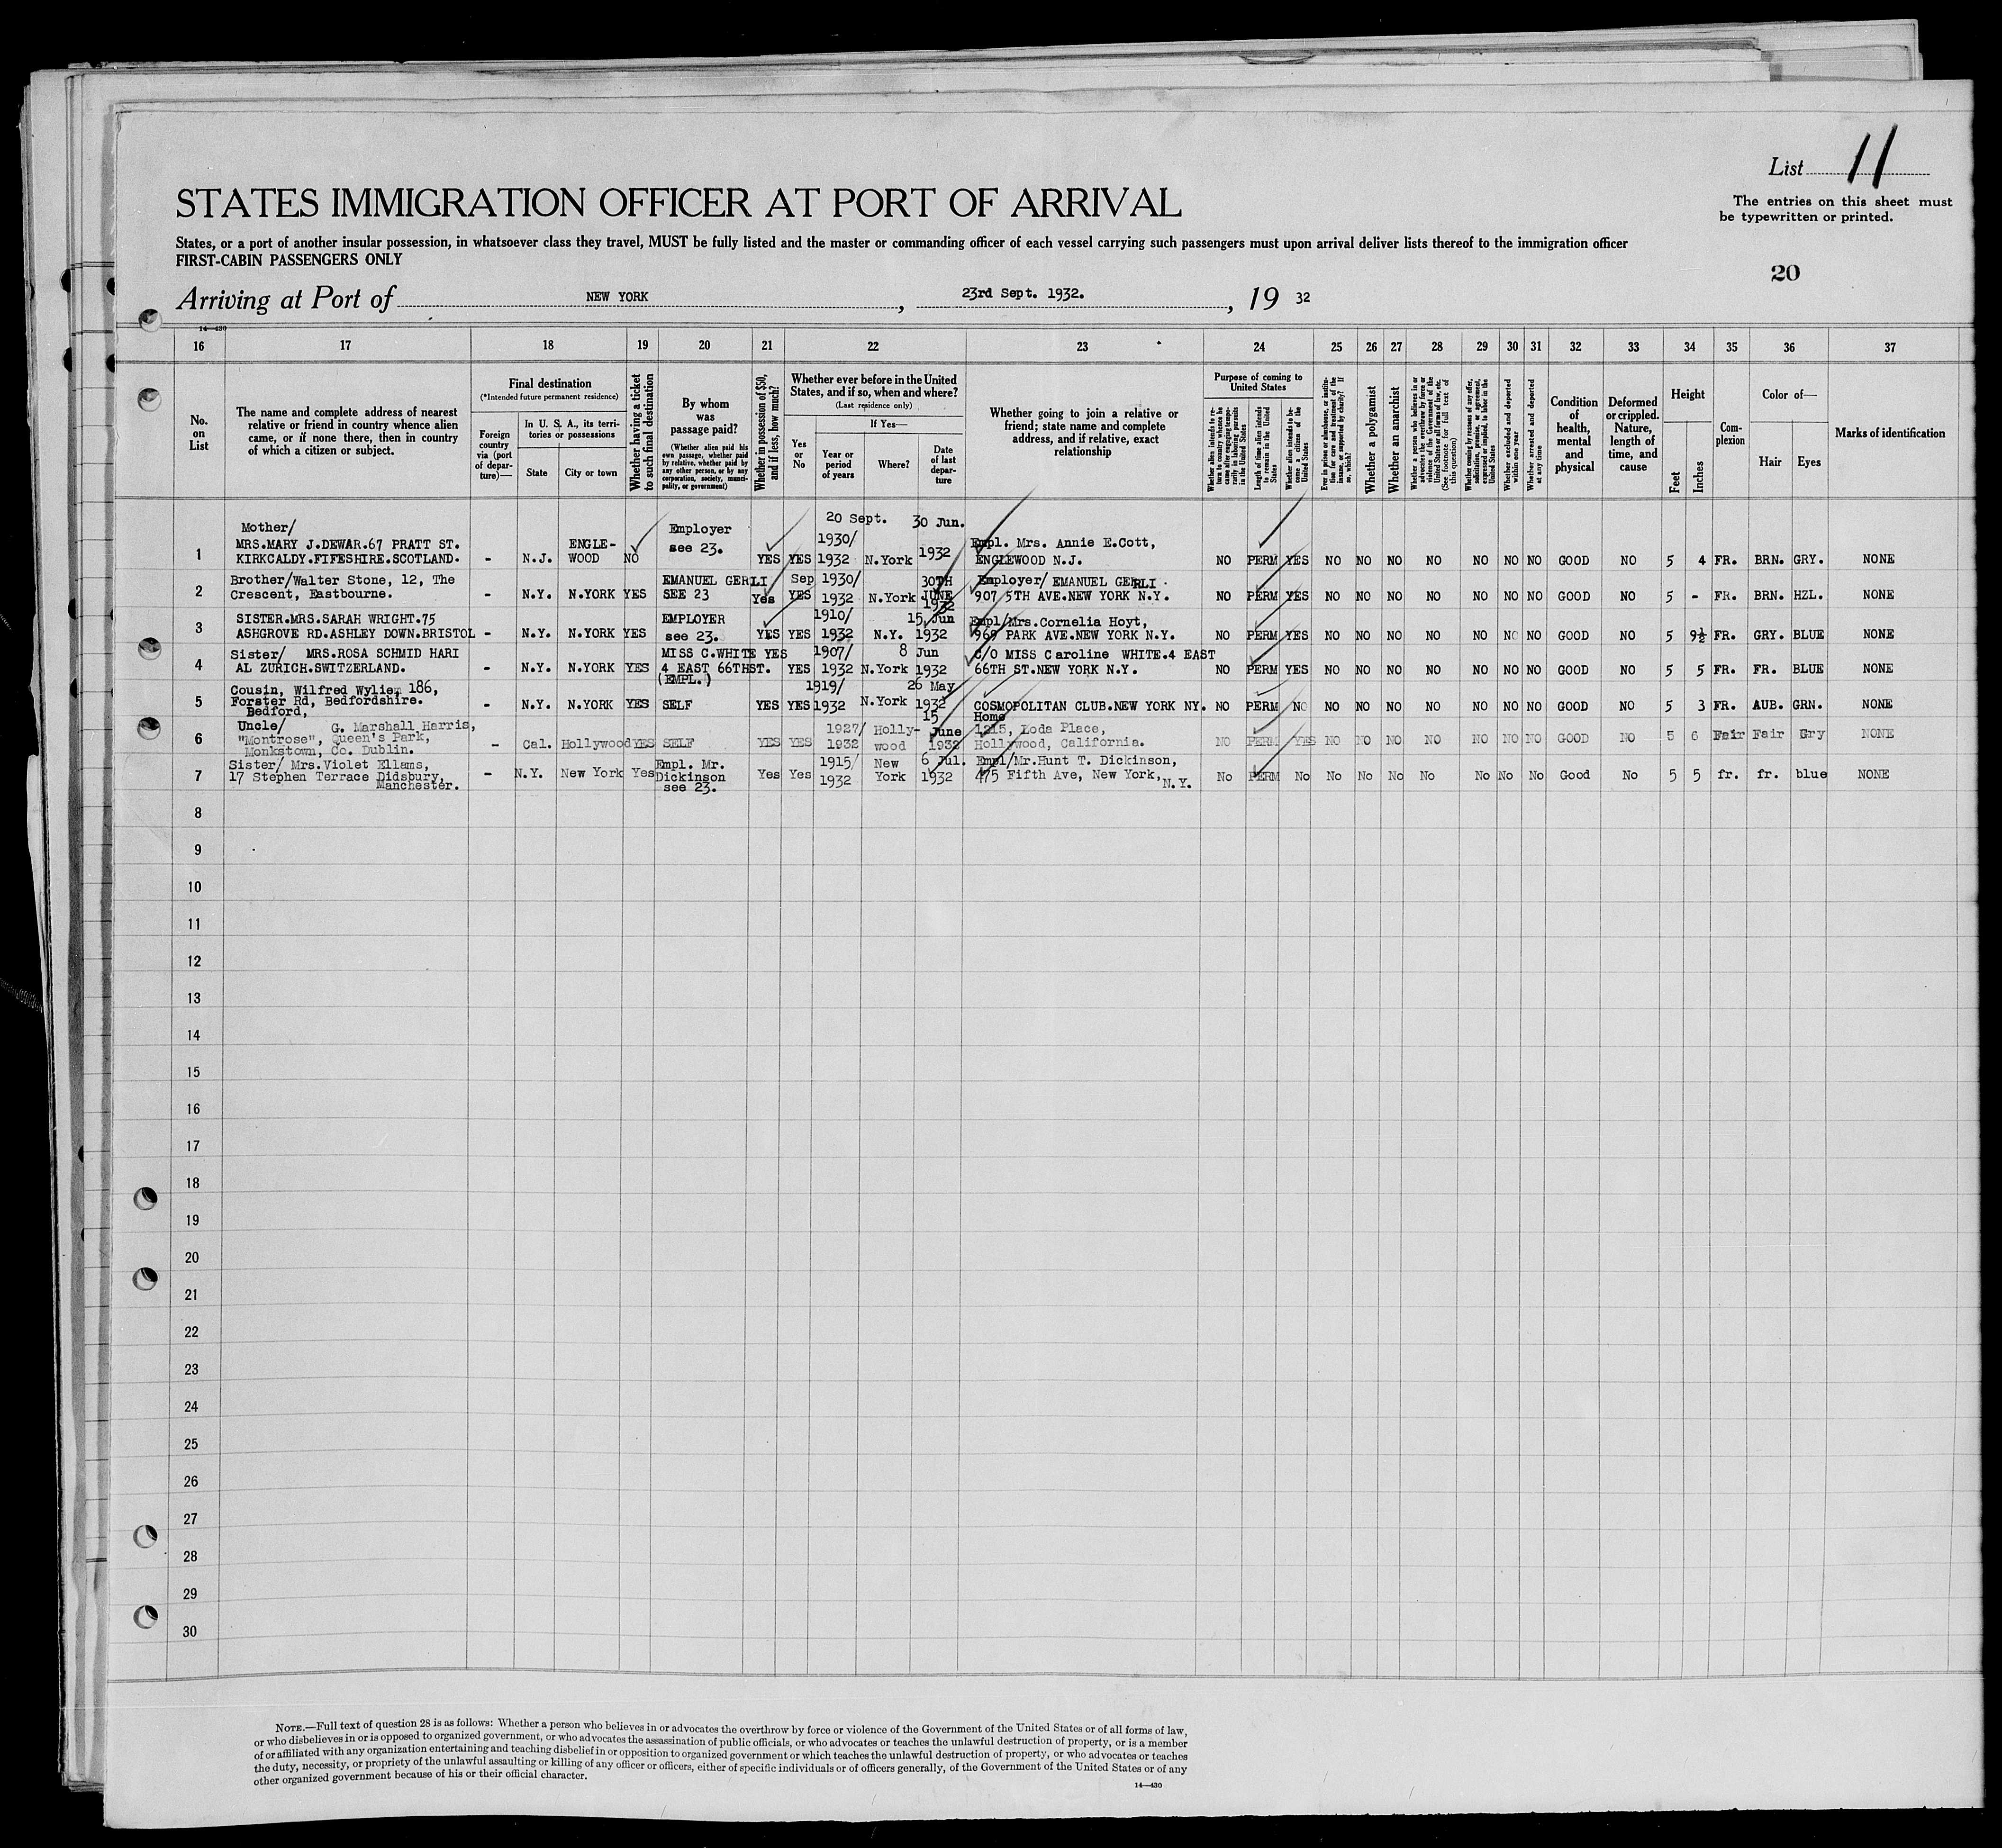 List 11
The entries on this sheet must
be typewritten or printed.
STATES IMMIGRATION OFFICER AT PORT OF ARRIVAL
States, or a port of another insular possession, in whatsoever class they travel, MUST be fully listed and the master or commanding officer of each vessel carrying such passengers must upon arrival deliver lists thereof to the immigration officer
FIRST-CABIN PASSENGERS ONLY
20
Arriving at Port of NEW YORK, 23rd Sept. 1932., 19 32
14—430
16 17 18 19 20 21 22 23 24 25 26 27 28 29 30 31 32 33 34 35 36 37
No.
on
List
The name and complete address of nearest
relative or friend in country whence alien
came, or if none there, then in country
of which a citizen or subject.
Final destination
(*Intended future permanent residence)
Foreign
country
via (port
of depar-
ture)—
In U. S. A., its terri-
tories or possessions
State
City or town
Whether having a ticket
to such final destination
By whom
was
passage paid?
(Whether alien paid his
own passage, whether paid
by relative, whether paid by
any other person, or by any
corporation, society, munici-
pality, or government)
Whether in possession of $50,
and if less, how much?
Whether ever before in the United
States, and if so, when and where?
(Last residence only)
Yes
or
No
If Yes—
Year or
period
of years
Where?
Date
of last
depar-
ture
Whether going to join a relative or
friend; state name and complete
address, and if relative, exact
relationship
Purpose of coming to
United States
Whether alien intends to re-
turn to country whence he
came after engaging tempo-
rarily in laboring pursuits
in the United States
Length of time alien intends
to remain in the United
States
Whether alien intends to be-
come a citizen of the
United States
Ever in prison or almshouse, or institu-
tion for care and treatment of the
insane, or supported by charity? If
so, which?
Whether a polygamist
Whether an anarchist
Whether a person who believes in or
advocates the overthrow by force or
violence of the Government of the
United States or all forms of law, etc.
(See footnote for full text of
this question)
Whether coming by reasons of any offer,
solicitation, promise, or agreement,
expressed or implied, to labor in the
United States
Whether excluded and deported
within one year
Whether arrested and deported
at any time
Condition
of
health,
mental
and
physical
Deformed
or crippled.
Nature,
length of
time, and
cause
Height
Feet
Inches
Com-
plexion
Color of—
Hair
Eyes
Marks of identification
Mother/ Employer 20 Sept. 30 Jun.
MRS.MARY J.DEWAR.67 PRATT ST. ENGLE- see 23. 1930/ 1932 Empl. Mrs. Annie E.Cott,
1 KIRKCALDY.FIFESHIRE.SCOTLAND. - N.J. WOOD NO YES YES 1932 N.York ENGLEWOOD N.J. NO PERM YES NO NO NO NO NO NO NO GOOD NO 5 4 FR. BRN. GRY. NONE
Brother/Walter Stone, 12, The EMANUEL GERLI Sep 1930/ 30TH Employer/ EMANUEL GERLI.
2 Crescent, Eastbourne. - N.Y. N.YORK YES SEE 23 Yes YES 1932 N.York JUNE 1932 907 5TH AVE.NEW YORK N.Y. NO PERM YES NO NO NO NO NO NO NO GOOD NO 5 - FR. BRN. HZL. NONE
SISTER.MRS.SARAH WRIGHT.75 EMPLOYER 1910/ 15 Jun Empl/Mrs.Cornelia Hoyt,
3 ASHGROVE RD.ASHLEY DOWN.BRISTOL - N.Y. N.YORK YES see 23. YES YES 1932 N.Y. 1932 969 PARK AVE.NEW YORK N.Y. NO PERM YES NO NO NO NO NO NO NO GOOD NO 5 9½ FR. GRY. BLUE NONE
Sister/ MRS.ROSA SCHMID HARI MISS C.WHITE YES 1907/ 8 Jun C/O MISS Caroline WHITE.4 EAST
4 AL ZURICH.SWITZERLAND. - N.Y. N.YORK YES 4 EAST 66THST. YES 1932 N.York 1932 66TH ST.NEW YORK N.Y. NO PERM YES NO NO NO NO NO NO NO GOOD NO 5 5 FR. FR. BLUE NONE
(EMPL.)
Cousin, Wilfred Wylie, 186, 1919/ 26 May
5 Forster Rd, Bedfordshire. - N.Y. N.YORK YES SELF YES YES 1932 N.York 1932 COSMOPOLITAN CLUB.NEW YORK NY. NO PERM NO NO NO NO NO NO NO NO GOOD NO 5 3 FR. AUB. GRN. NONE
Bedford,
Uncle/ G. Marshall Harris, 1927/ Holly- 15 June Home 1215, Loda Place,
6 "Montrose", Queen's Park, - Cal. Hollywood YES SELF YES YES 1932 wood 1932 Hollywood, California. NO PERM YES NO NO NO NO NO NO NO GOOD NO 5 6 Fair Fair Gry NONE
Monkstown, Co. Dublin.
Sister/ Mrs.Violet Ellams, Empl. Mr. 1915/ New 6 Jul. Empl/Mr.Hunt T. Dickinson,
7 17 Stephen Terrace Didsbury, - N.Y. New York Yes Dickinson Yes Yes 1932 York 1932 475 Fifth Ave, New York, N.Y. No PERM No No No No No No No No Good No 5 5 fr. fr. blue NONE
Manchester. see 23.
8
9
10
11
12
13
14
15
16
17
18
19
20
21
22
23
24
25
26
27
28
29
30
NOTE.—Full text of question 28 is as follows: Whether a person who believes in or advocates the overthrow by force or violence of the Government of the United States or of all forms of law,
or who disbelieves in or is opposed to organized government, or who advocates the assassination of public officials, or who advocates or teaches the unlawful destruction of property, or is a member
of or affiliated with any organization entertaining and teaching disbelief in or opposition to organized government or which teaches the unlawful destruction of property, or who advocates or teaches
the duty, necessity, or propriety of the unlawful assaulting or killing of any officer or officers, either of specific individuals or of officers generally, of the Government of the United States or of any
other organized government because of his or their official character.
14—430